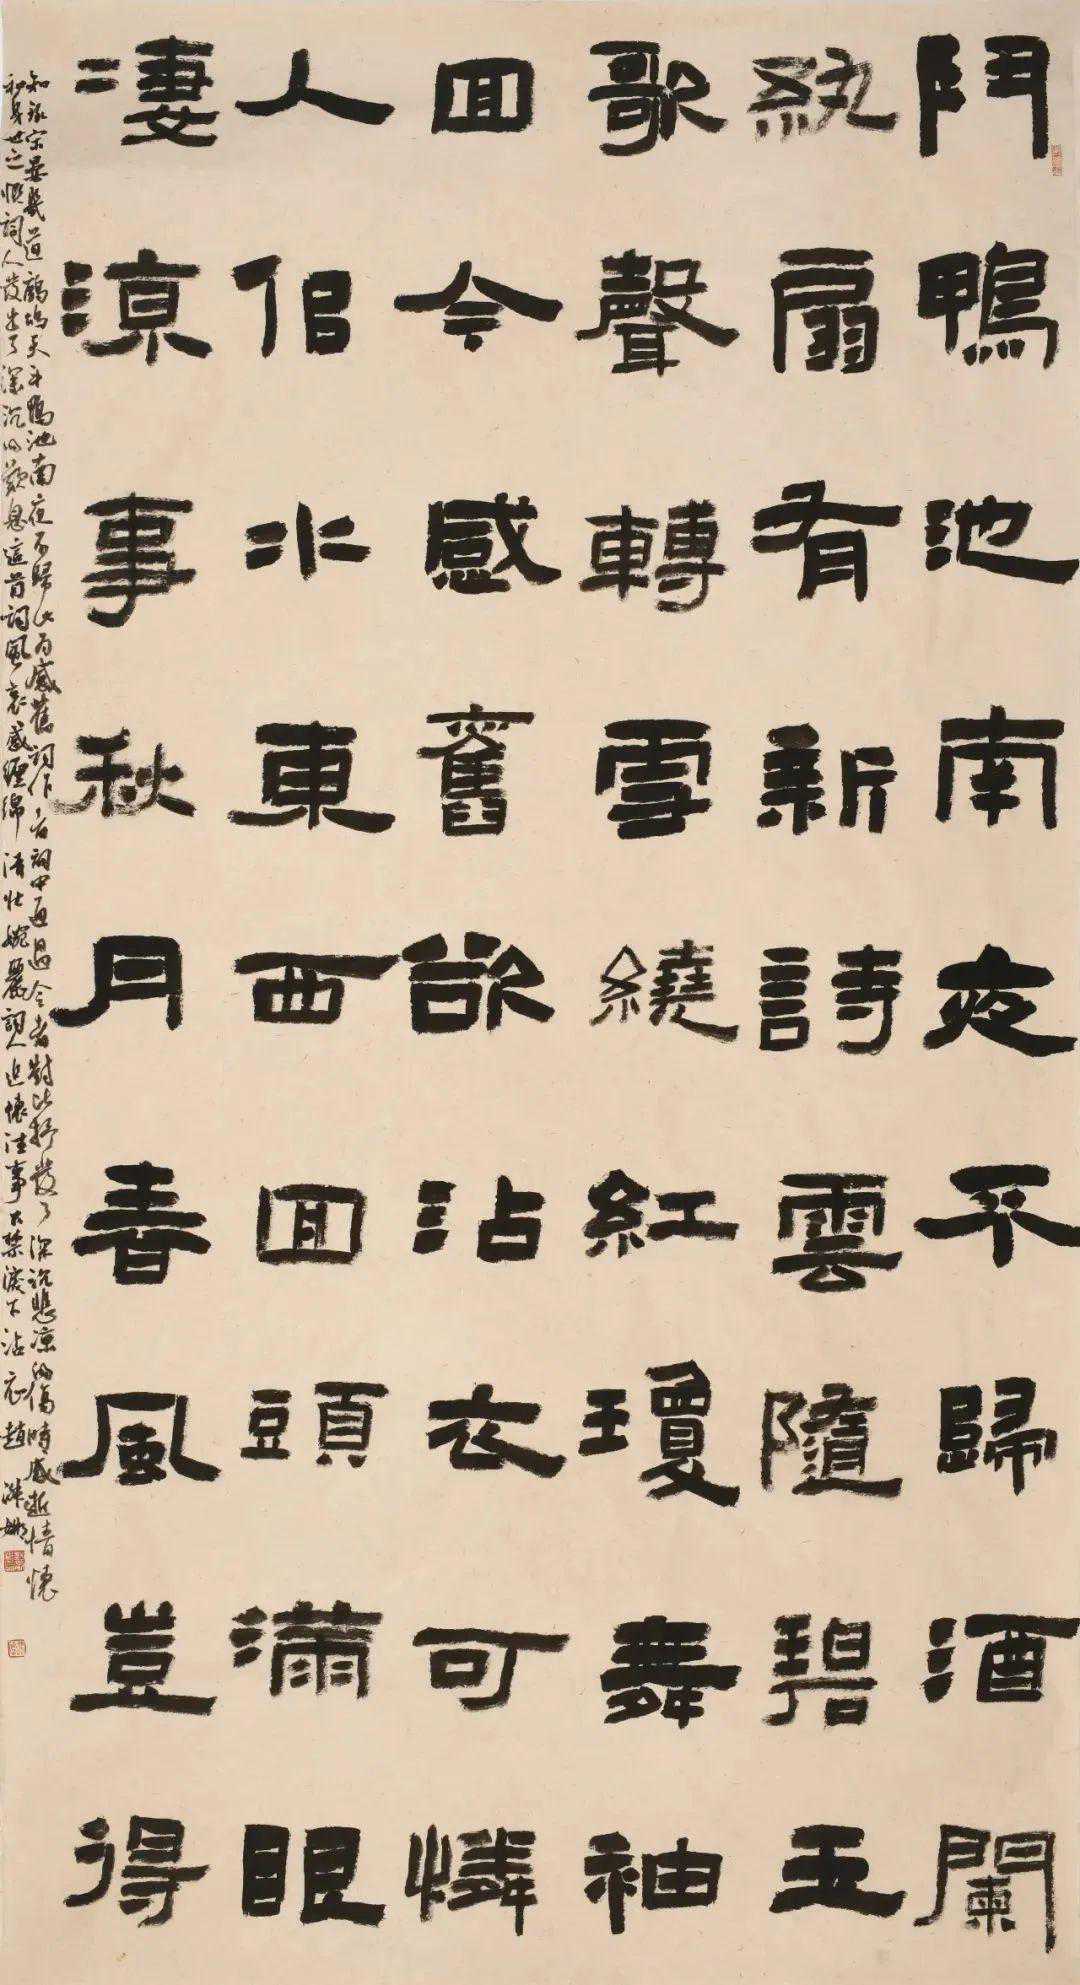 鬥鴨池南夜不歸酒闌
紈扇有新詩雲隨碧玉
歌聲轉雪繞紅瓊舞袖
囬今感舊欲沾衣可憐
人佀水東西囬頭滿眼
凄涼事秋月春風豈得
知錄宋晏幾道鷓鴣天斗鴨池南夜不歸此为感舊詞作者詞中通過今昔對比抒發了深沉悲凉的傷時感逝情懷
和身世之恨詞人發出了深沉的歎息這首詞風哀感纏綿清壯婉麗詞人追懷往事不禁淚下沾衣趙